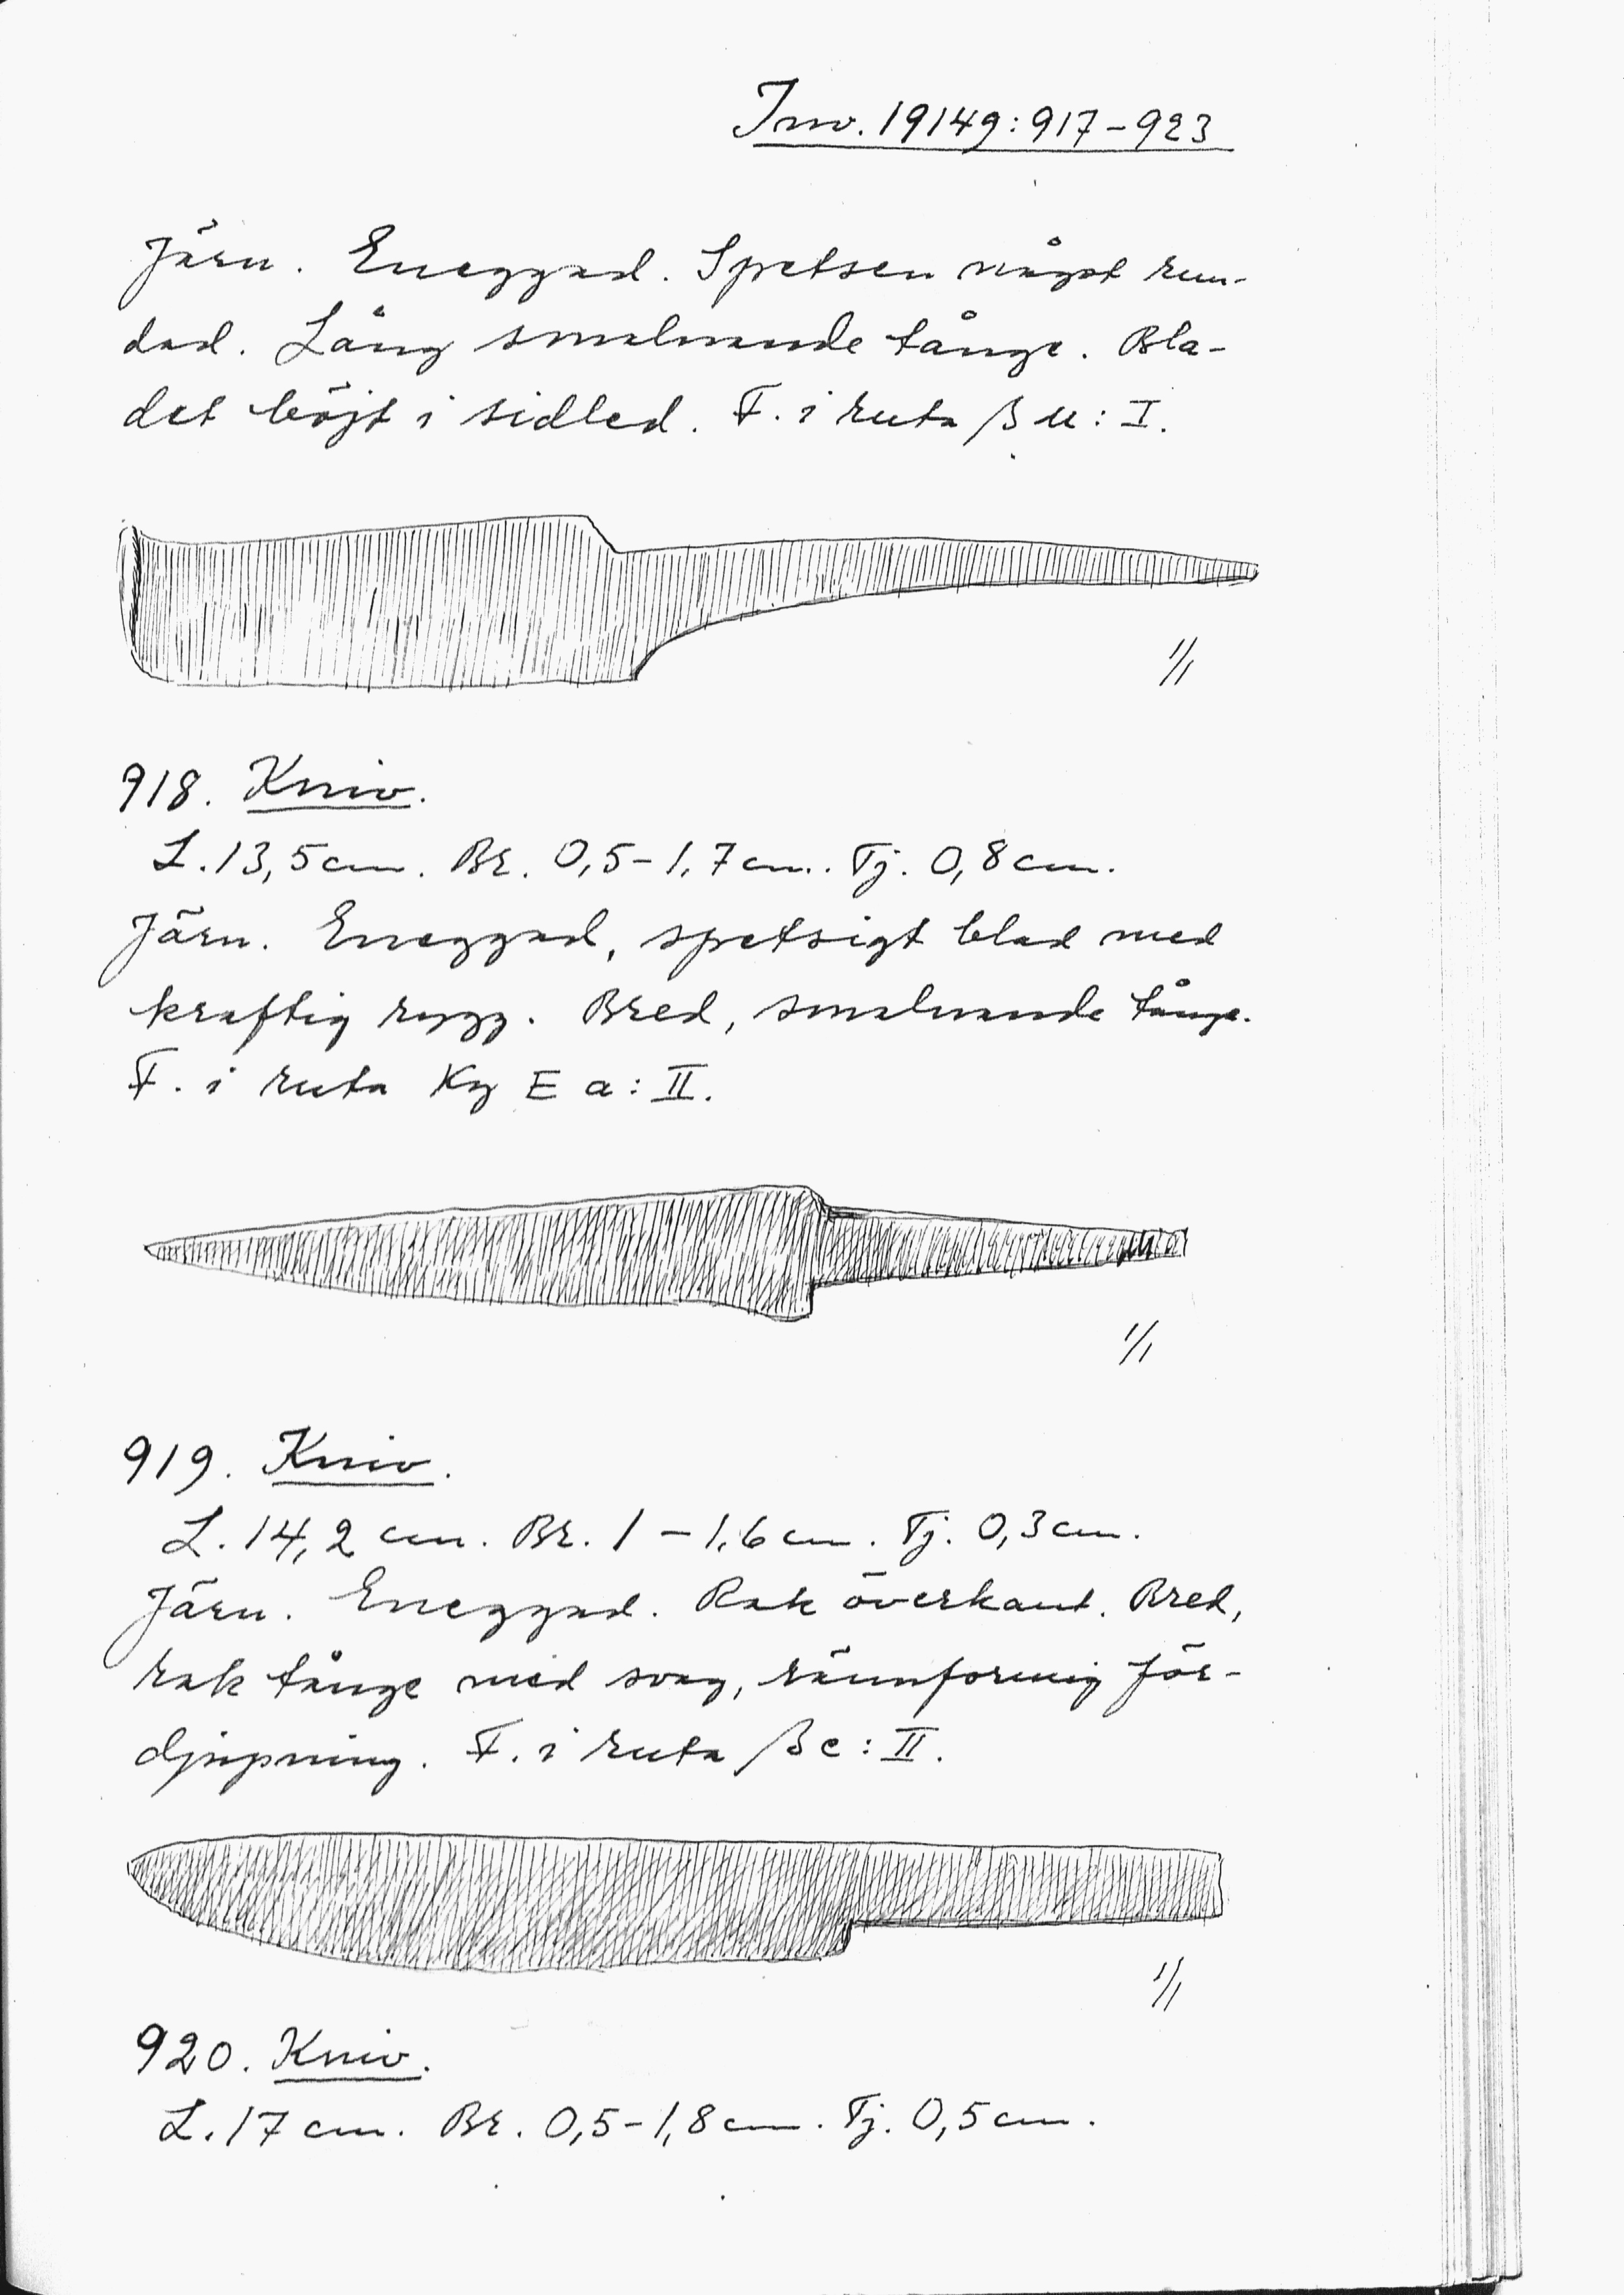 Inv. 19149:917-923
Järn. Eneggad. Spetsen något run-
dad. Lång smalnande tånge. Bla-
det böjt i sidled. F. i ruta β u: I.
1/1
918. Kniv.
L. 13,5 cm. Br. 0,5-1,7 cm. Tj. 0,8 cm.
Järn. Eneggad, spetsigt blad med
kraftig rygg. Bred, smalnande tånge.
F. i ruta Kg E a: II.
1/1
919. Kniv.
L. 14,2 cm. Br. 1-1,6 cm. Tj. 0,3 cm.
Järn. Eneggad. Rak överkant. Bred,
rak tånge med svag, rännformig för-
djupning. F. i ruta β c: II.
1/1
920. Kniv.
L. 17 cm. Br. 0,5-1,8 cm. Tj. 0,5 cm.